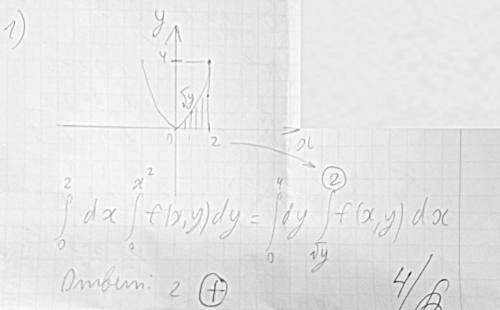 1)
y
4
√y
0 2 x
2
∫₀² dx ∫₀^{x²} f(x,y)dy = ∫₀⁴ dy ∫_{√y}^{2} f(x,y) dx
Ответ: 2 +
4/